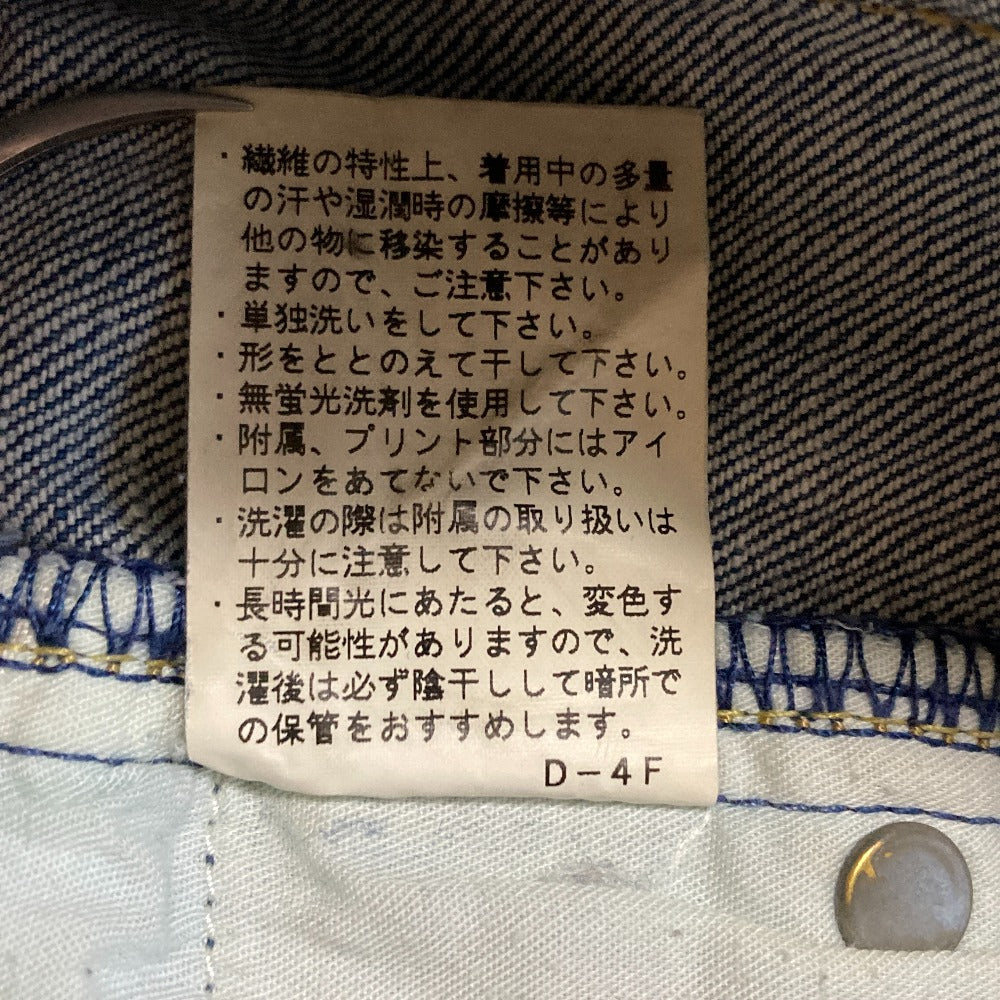 ・繊維の特性上、着用中の多量
の汗や湿潤時の摩擦等により
他の物に移染することがあり
ますので、ご注意下さい。
・単独洗いをして下さい。
・形をととのえて干して下さい。
・無蛍光洗剤を使用して下さい。
・附属、プリント部分にはアイ
ロンをあてないで下さい。
・洗濯の際は附属の取り扱いは
十分に注意して下さい。
・長時間光にあたると、変色す
る可能性がありますので、洗
濯後は必ず陰干しして暗所で
の保管をおすすめします。
D-4F